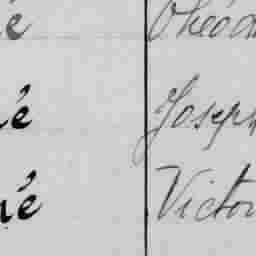 é Théod
é Joseph
né Victor